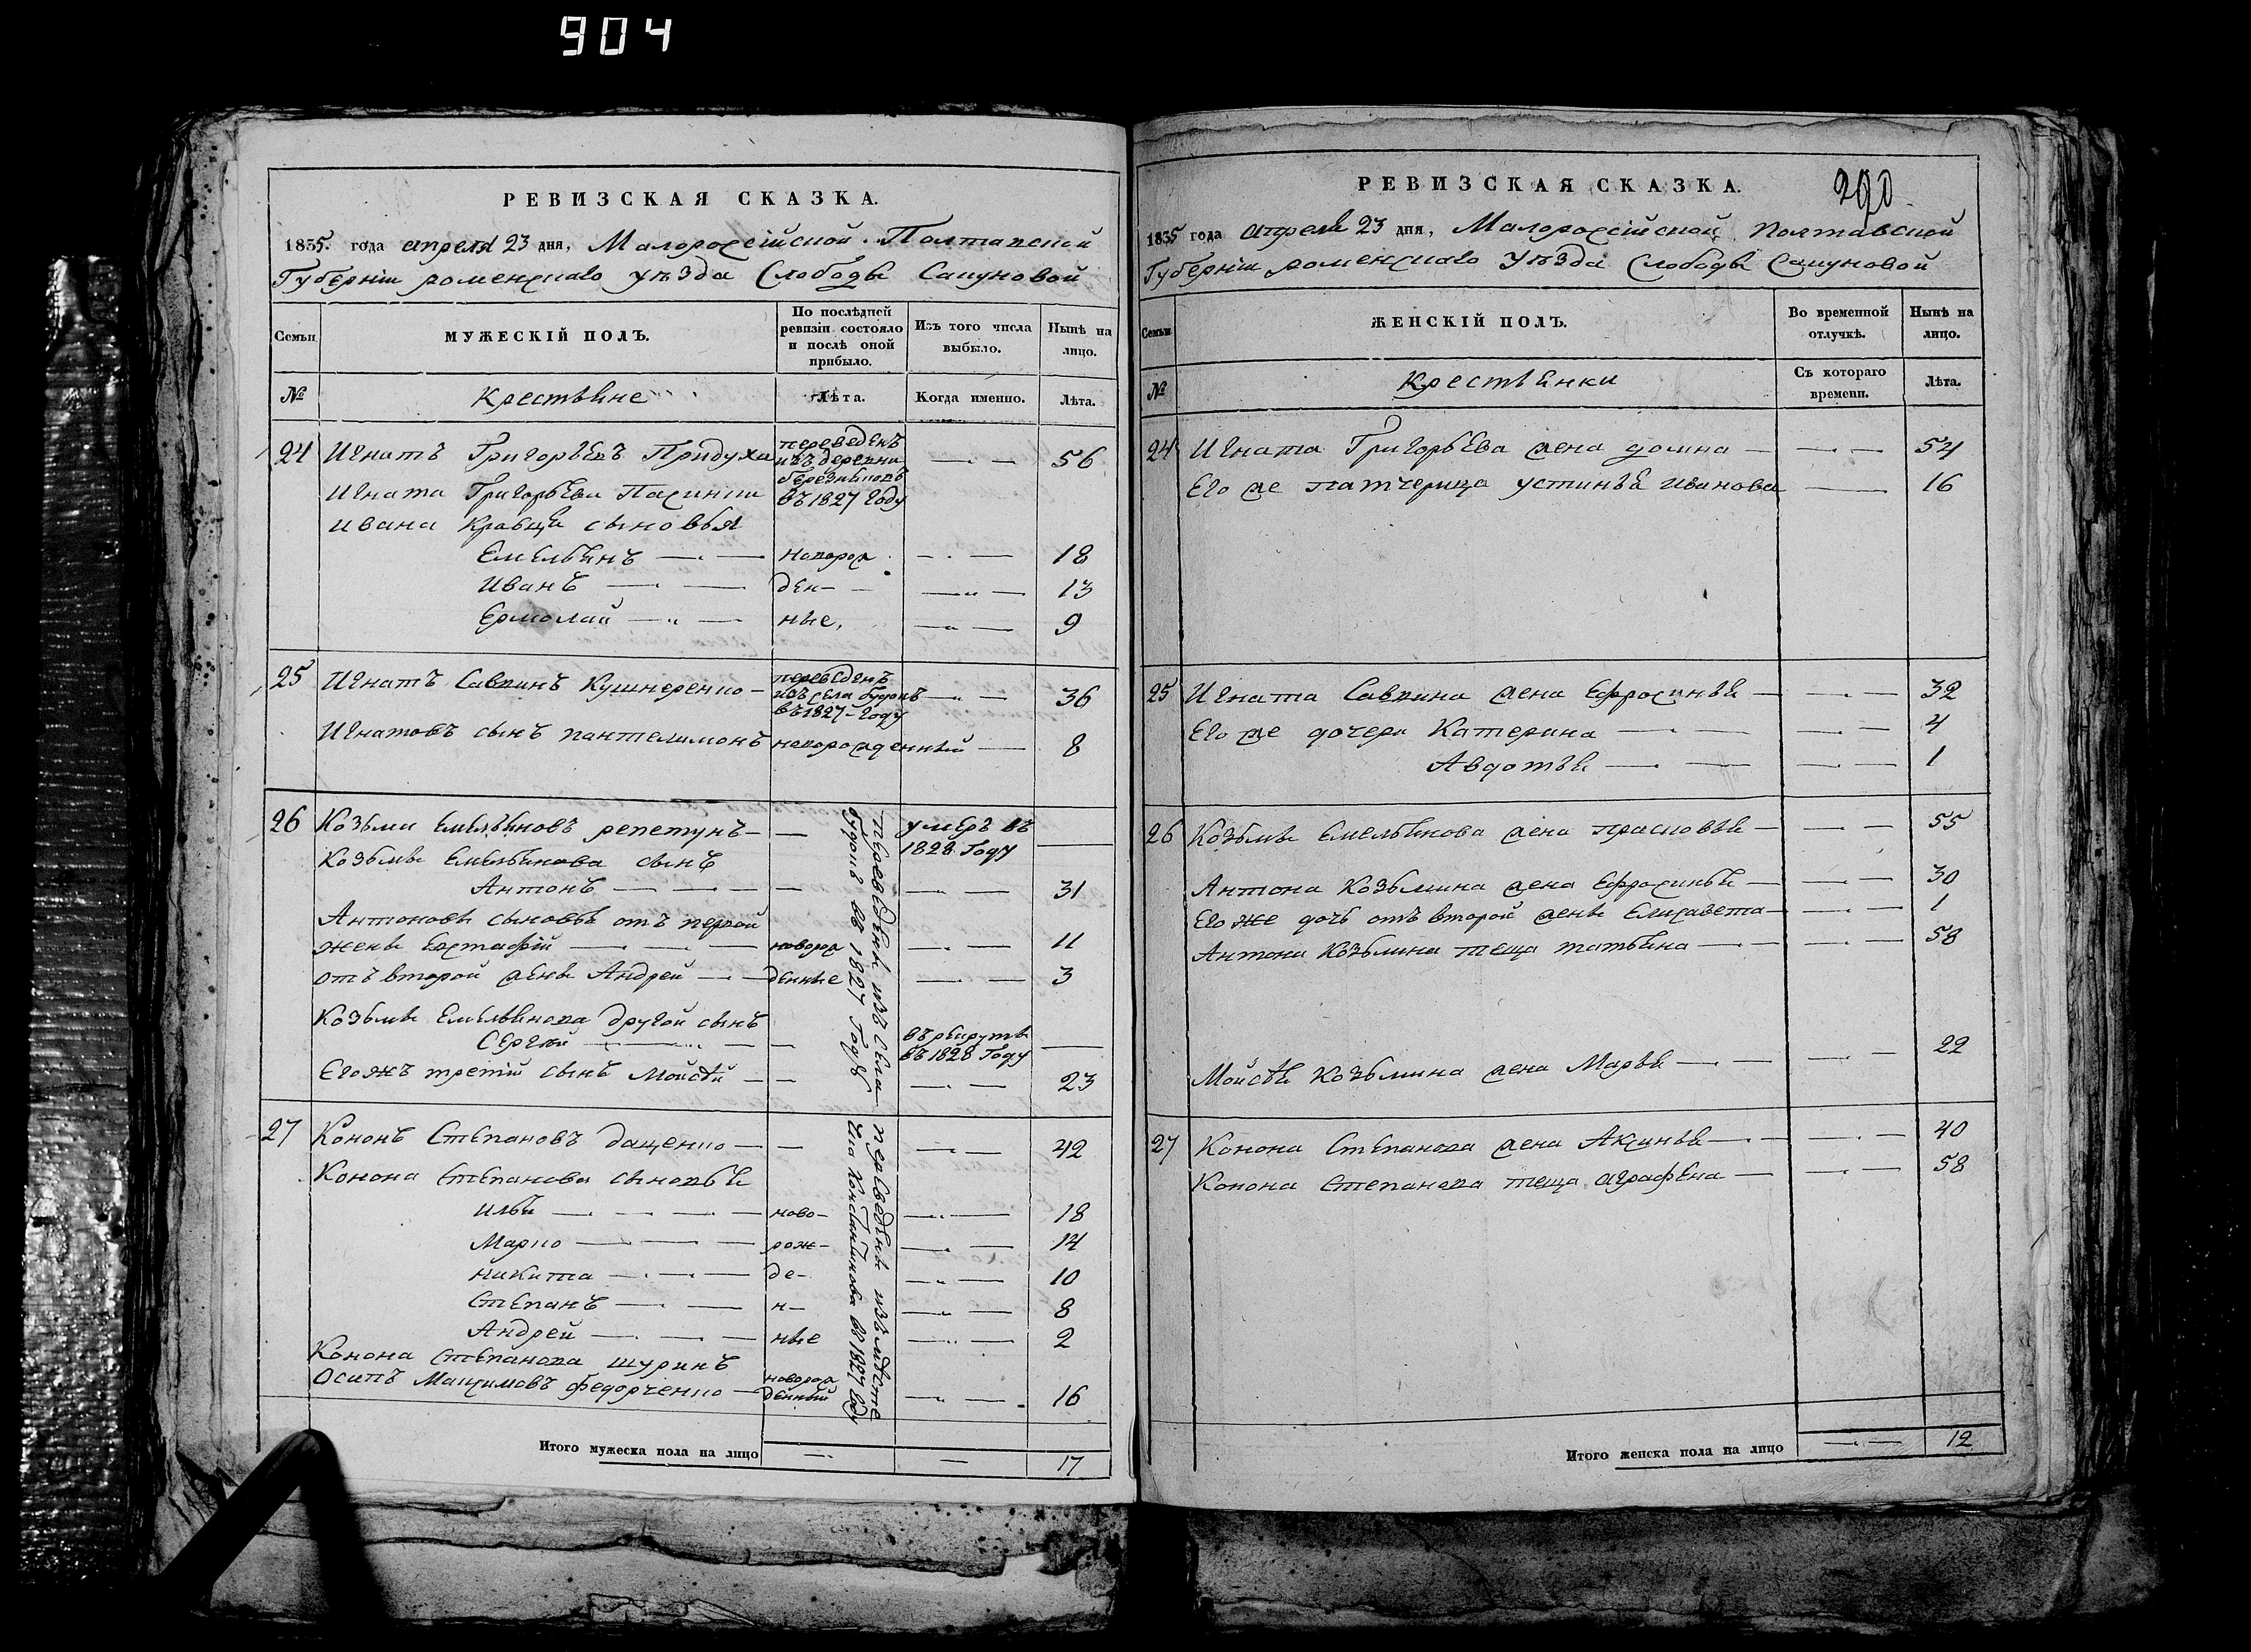 904
РЕВИЗСКАЯ СКАЗКА.
1835. года апреля 23 дня, Малороссійской Полтавской
Губерніи роменскаго уѣзда Слободы Сапуновой
Семьи
МУЖЕСКІЙ ПОЛЪ.
По послѣдней ревизіи состояло и послѣ оной прибыло.
Изъ того числа выбыло.
Нынѣ на лицо.
№
Крестьяне
Лѣта.
Когда именно.
Лѣта.
24 Игнатъ Григорьевъ Придуха переведенъ изъ деревни въ 1827 году 56
Игната Григорьева Пасинки
Ивана Кравца сыновья
Емельянъ новорож 18
Иванъ ден- 13
Ермолай ные, 9
25 Игнатъ Савинъ Кушнеренко переведенъ изъ села въ 1827 году 36
Игнатовъ сынъ пантелимонъ новорожденный 8
26 Козьма Емельяновъ репетунъ умеръ въ 1828 Году
Козьмы Емельянова сынъ
Антонъ 31
Антоновы сыновья отъ первой
жены Евстафій новорож 11
отъ второй жены Андрей денные 3
Козьмы Емельянова другой сынъ
Сергѣй въ рекруты въ 1828 Году
Егожъ третій сынъ Мойсѣй 23
переведены изъ села
въ 1827 Году
27 Кононъ Степановъ дащенко 42
Конона Степанова сыновья
Илья ново- 18
Марко рож- 14
Никита де- 10
Степанъ н- 8
Андрей ные 2
Конона Степанова шуринъ
Осипъ Максимовъ федорченко новорож денный 16
переведены изъ мѣсте
чка Константинова въ 1827 году
Итого мужеска пола на лицо 17
РЕВИЗСКАЯ СКАЗКА.
290
1835 года апреля 23 дня, Малороссійской Полтавской
Губерніи роменскаго уѣзда Слободы Сапуновой
Семьи
ЖЕНСКІЙ ПОЛЪ.
Во временной отлучкѣ.
Нынѣ на лицо.
№
Крестьянки
Съ котораго времени.
Лѣта.
24 Игната Григорьева жена домна 54
Его же патчерица устинья иванова 16
25 Игната Савина жена Ефросинья 32
Его же дочери Катерина 4
Авдотья 1
26 Козьмы Емельянова жена прасковья 55
Антона Козьмина жена Ефросинья 30
Его же дочь отъ второй жены Елисавета 1
Антона Козьмина теща татьяна 58
Мойсѣя Козьмина жена Марья 22
27 Конона Степанова жена Аксинья 40
Конона Степанова теща аграфена 58
Итого женска пола на лицо 12